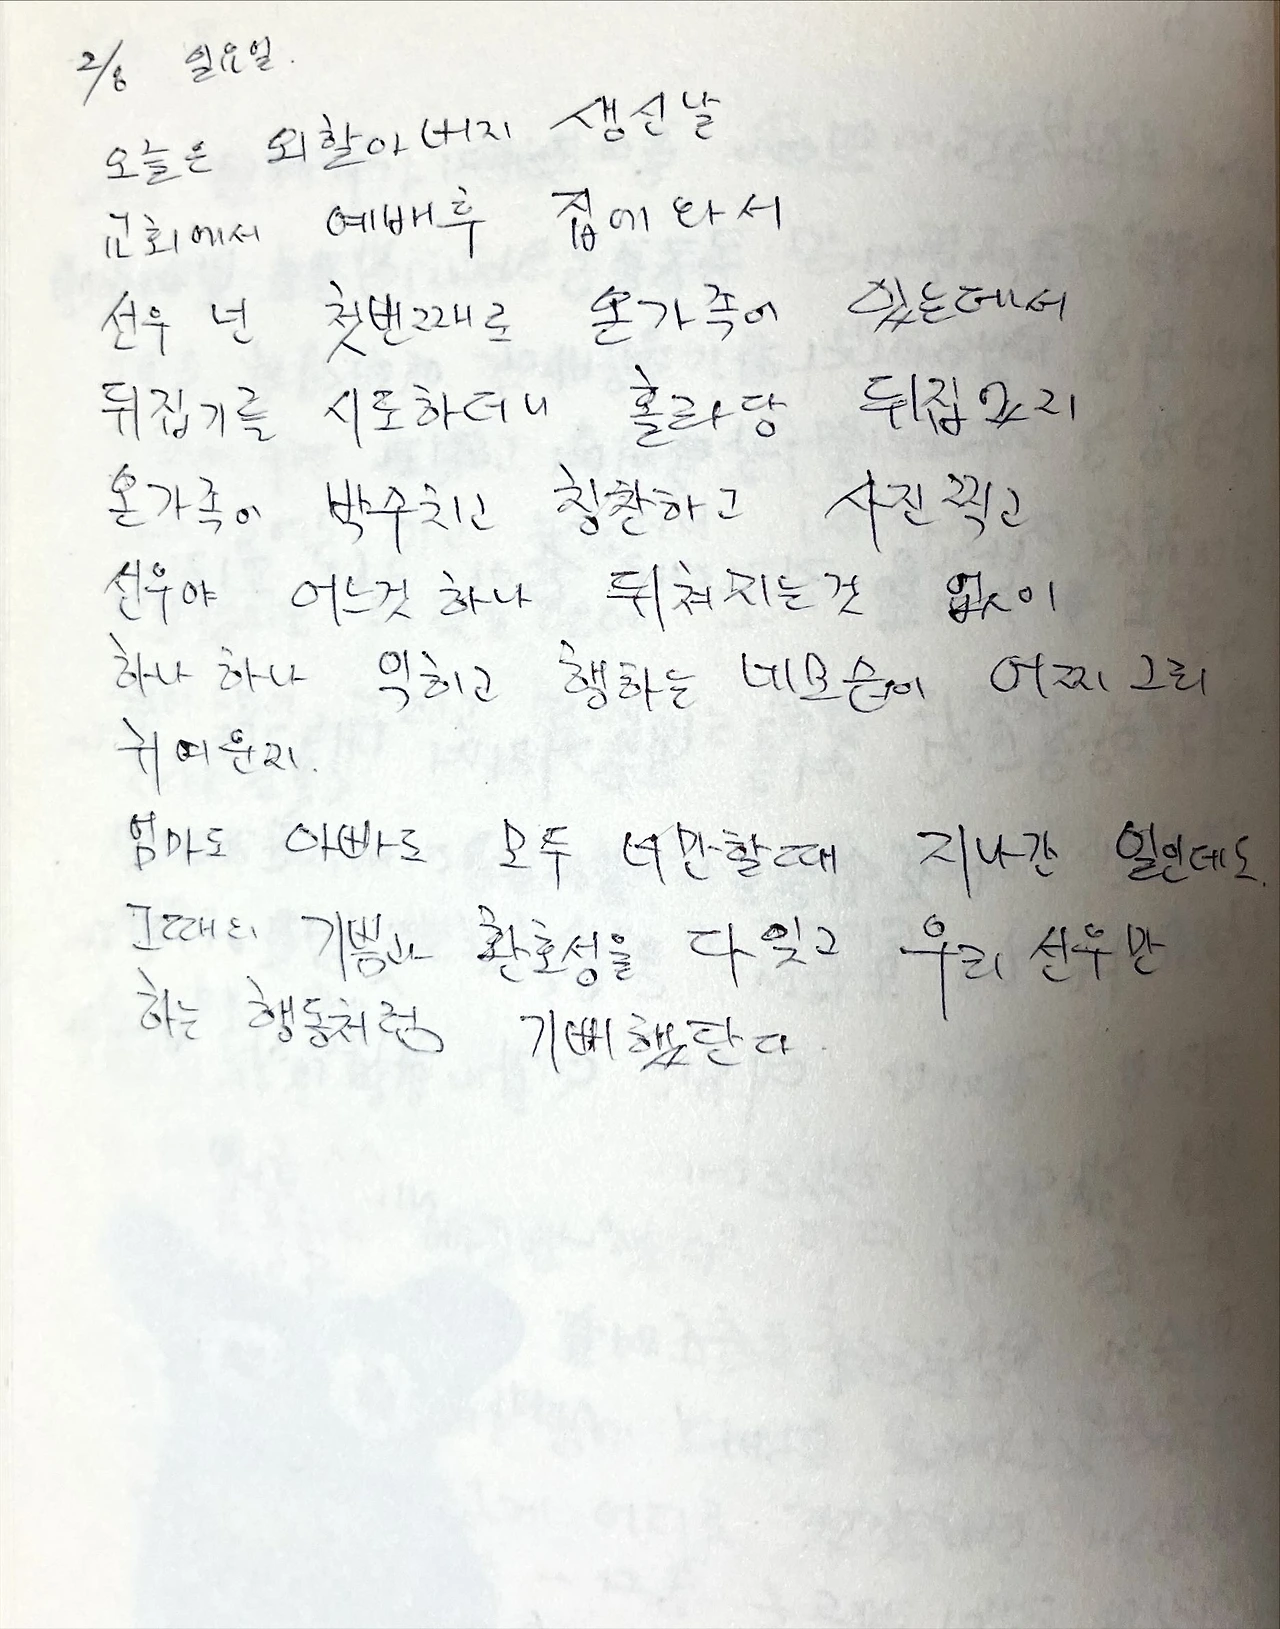 2/8 일요일.
오늘은 외할아버지 생신날
교회에서 예배후 집에 와서
선우 넌 첫번째로 온가족이 있는데서
뒤집기를 시도하더니 홀라당 뒤집고지
온가족이 박수치고 칭찬하고 사진찍고
선우야 어느것 하나 뒤쳐지는것 없이
하나 하나 익히고 행하는 네모습이 어찌 그리
귀여운지.
엄마도 아빠도 모두 너만할때 지나간 일인데도.
그때의 기쁨과 환호성을 다 잊고 우리 선우만
하는 행동처럼 기뻐했단다.